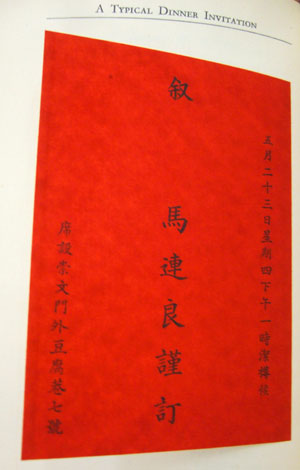 A TYPICAL DINNER INVITATION
五月二十三日星期四下午一時潔樽候
叙
馬連良謹訂
席設崇文門外豆腐巷七號